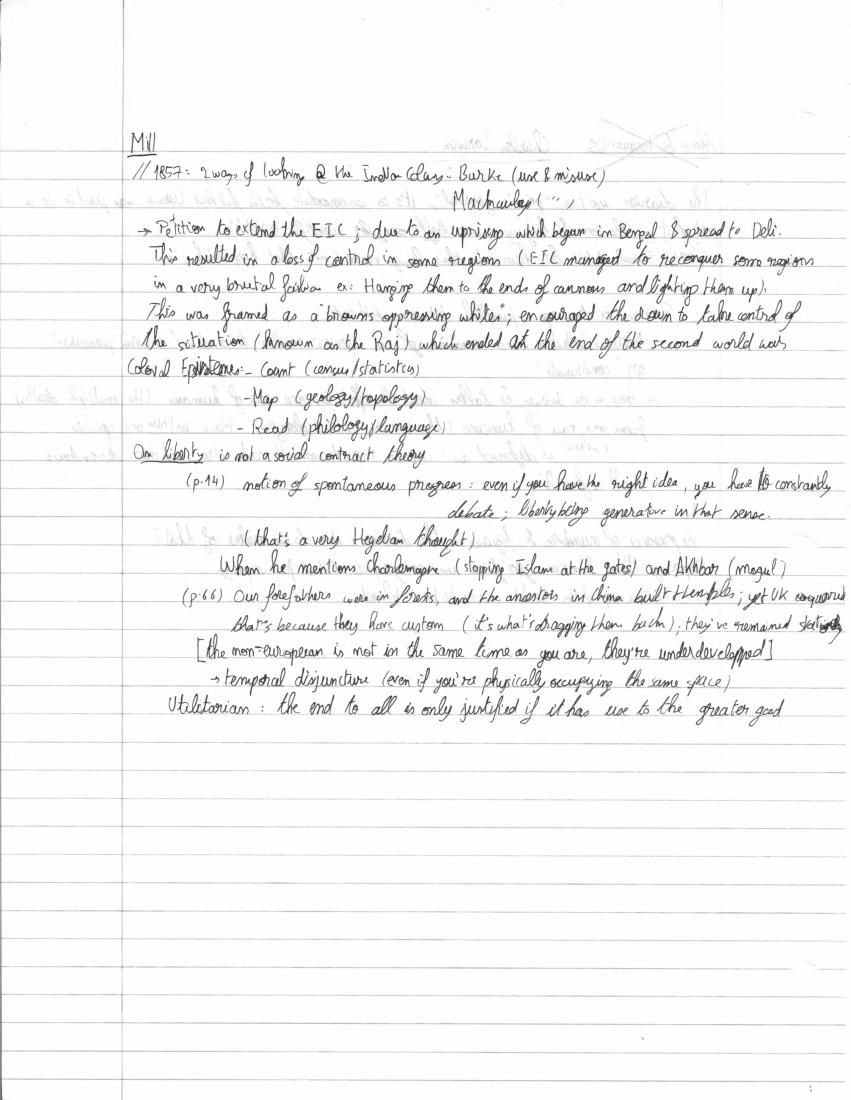 Mill
// 1857: 2 ways of looking @ the Indian Class: - Burke (use & misuse)
Machaulay ( " " )
→ Petition to extend the EIC ; due to an uprising which began in Bengal & spread to Deli.
This resulted in a loss of control in some regions (EIC managed to reconquer some regions
in a very brutal fashion ex: Hanging them to the ends of cannons and lighting them up).
This was framed as a "browns oppressing whites"; encouraged the down to take control of
the situation (known as the Raj) which ended at the end of the second world war
Colonal Epistemes: - Count (census/statistics)
- Map (geology/topology)
- Read (philology/language)
On liberty is not a social contract theory
(p.14) notion of spontaneous progress : even if you have the right idea, you have to constantly
debate ; liberty being generative in that sense.
(that's a very Hegelian thought)
When he mentions Charlemagne (stopping Islam at the gates) and Akhbar (mogul)
(p.66) Our forefathers were in forests, and the ancestors in China built temples; yet UK conquered
that's because they have custom (it's what's dragging them back); they've remained
[the non-european is not in the same time as you are, they're underdevelopped]
→ temporal disjuncture (even if you're physically occupying the same space)
Utilitarian : the end to all is only justified if it has use to the greater good